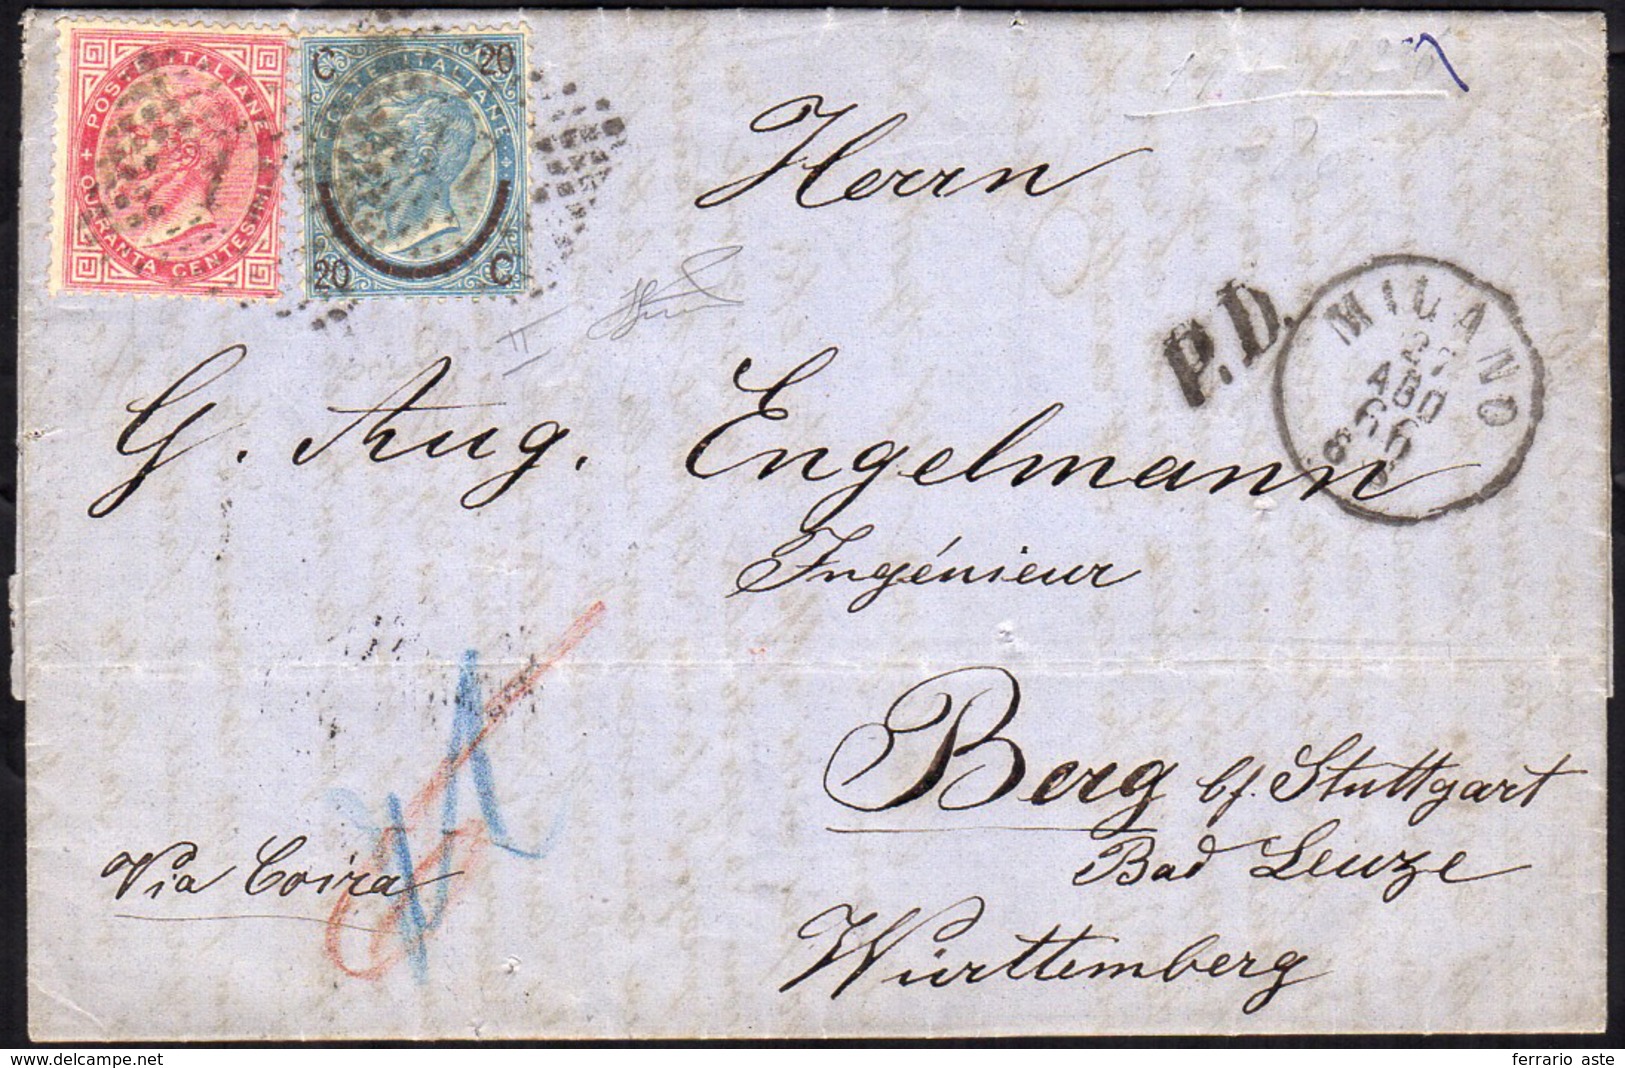 POSTE ITALIANE
QUARANTA CENTESIMI
C 20
POSTE ITALIANE
20 C
II
Herrn
P.D.
MILANO
27
AGO
66
G. Aug. Engelmann
Ingénieur
Berg b/. Stuttgart
Bad Leuze
Württemberg
Via Coira
www.delcampe.net
ferrario aste